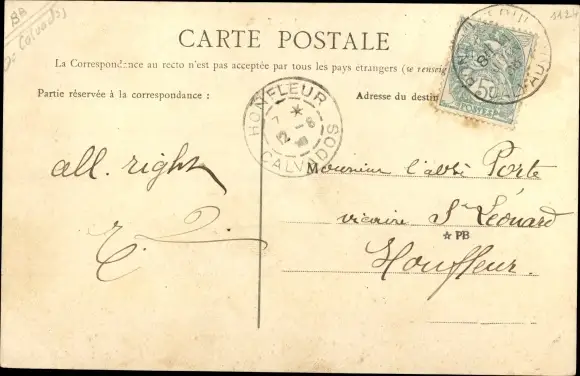 (Calvados)
1124
CARTE POSTALE
La Correspondance au recto n'est pas acceptée par tous les pays étrangers (se renseig
Partie réservée à la correspondance :
Adresse du destin
5c
POSTES
HONFLEUR
7 *
12 - 8
CALVADOS
all. right
Monsieur l'abbé Porte
vicaire St Léonard
☆ PB
Honfleur.